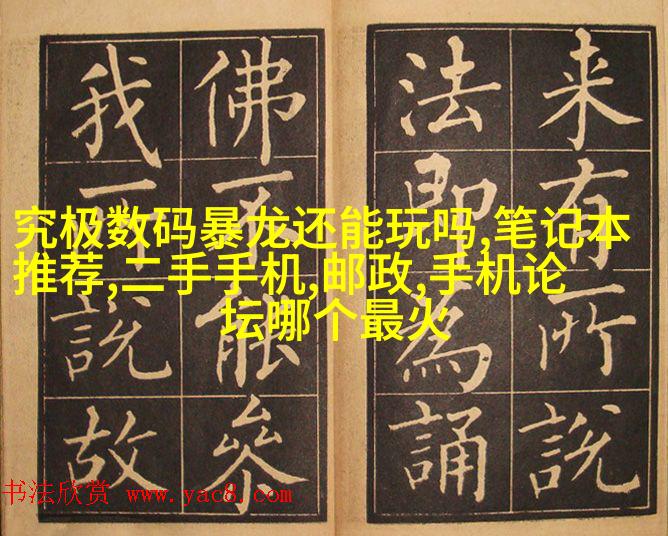 来有所說
法即為誦
佛不能叅
我說故
究极数码暴龙还能玩吗,笔记本
推荐,二手手机,邮政,手机论
坛哪个最火
书法欣赏 www.yac8.com